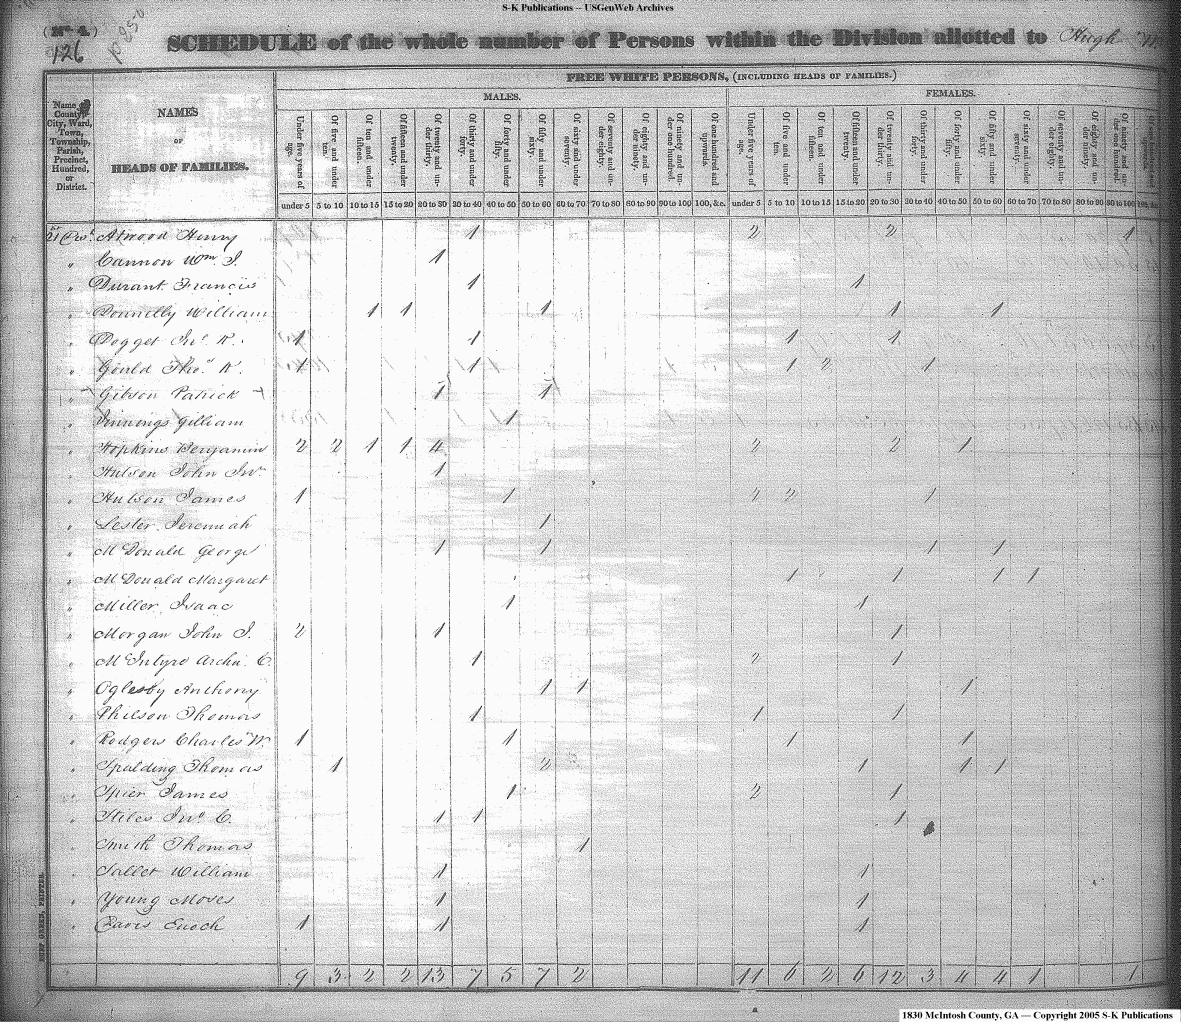 S-K Publications -- USGenWeb Archives
(No 4.)
126
SCHEDULE of the whole number of Persons within the Division allotted to Hugh
FREE WHITE PERSONS, (INCLUDING HEADS OF FAMILIES.)
MALES. FEMALES.
Name County, City, Ward, Town, Township, Parish, Precinct, Hundred, or District.
NAMES OF HEADS OF FAMILIES.
Under five years of age. Of five and under ten. Of ten and under fifteen. Of fifteen and under twenty. Of twenty and under thirty. Of thirty and under forty. Of forty and under fifty. Of fifty and under sixty. Of sixty and under seventy Of seventy and under eighty. Of eighty and under ninety. Of ninety and under one hundred. Of one hundred and upwards. Under five years of age. Of five and under ten. Of ten and under fifteen. Of fifteen and under twenty. Of twenty and under thirty. Of thirty and under forty. Of forty and under fifty. Of fifty and under sixty. Of sixty and under seventy. Of seventy and under eighty. Of eighty and under ninety. Of ninety and under one hundred.
under 5 5 to 10 10 to 15 15 to 20 20 to 30 30 to 40 40 to 50 50 to 60 60 to 70 70 to 80 80 to 90 90 to 100 100, &c. under 5 5 to 10 10 to 15 15 to 20 20 to 30 30 to 40 40 to 50 50 to 60 60 to 70 70 to 80 80 to 90 90 to 100
21 Atwood Henry 1 2 2 1
" Cannon Wm J. 1
" Durant Francis 1 1
" Donnelly William 1 1 1 1 1
" Dogget Jno. K. 1 1 1 1
" Gould Thos. K. 1 1 1 2 1
" Gibson Patrick 1 1
" Jinnings Gilliam 1
" Hopkins Benjamin 2 2 1 1 4 2 2 1
" Hulson John 1
" Hulson James 1 1 2 2 1
" Lester Jeremiah 1
" McDonald George 1 1 1 1
" McDonald Margaret 1 1 1 1
" Miller Isaac 1 1
" Morgan John J. 2 1 1
" McIntyre Archd. C. 1 2 1
" Oglesby Anthony 1 1 1
" Philson Thomas 1 1 1
" Rodgers Charles W. 1 1 1 1
" Spalding Thomas 1 2 1 1 1
" Spier James 1 2 1
" Stiles Jno. C. 1 1 1
" Smith Thomas 1
" Sallet William 1 1
" Young Moses 1 1
" Davis Enoch 1 1 1
9 3 2 2 13 7 5 7 2 11 6 2 6 12 3 4 4 1 1
1830 McIntosh County, GA — Copyright 2005 S-K Publications